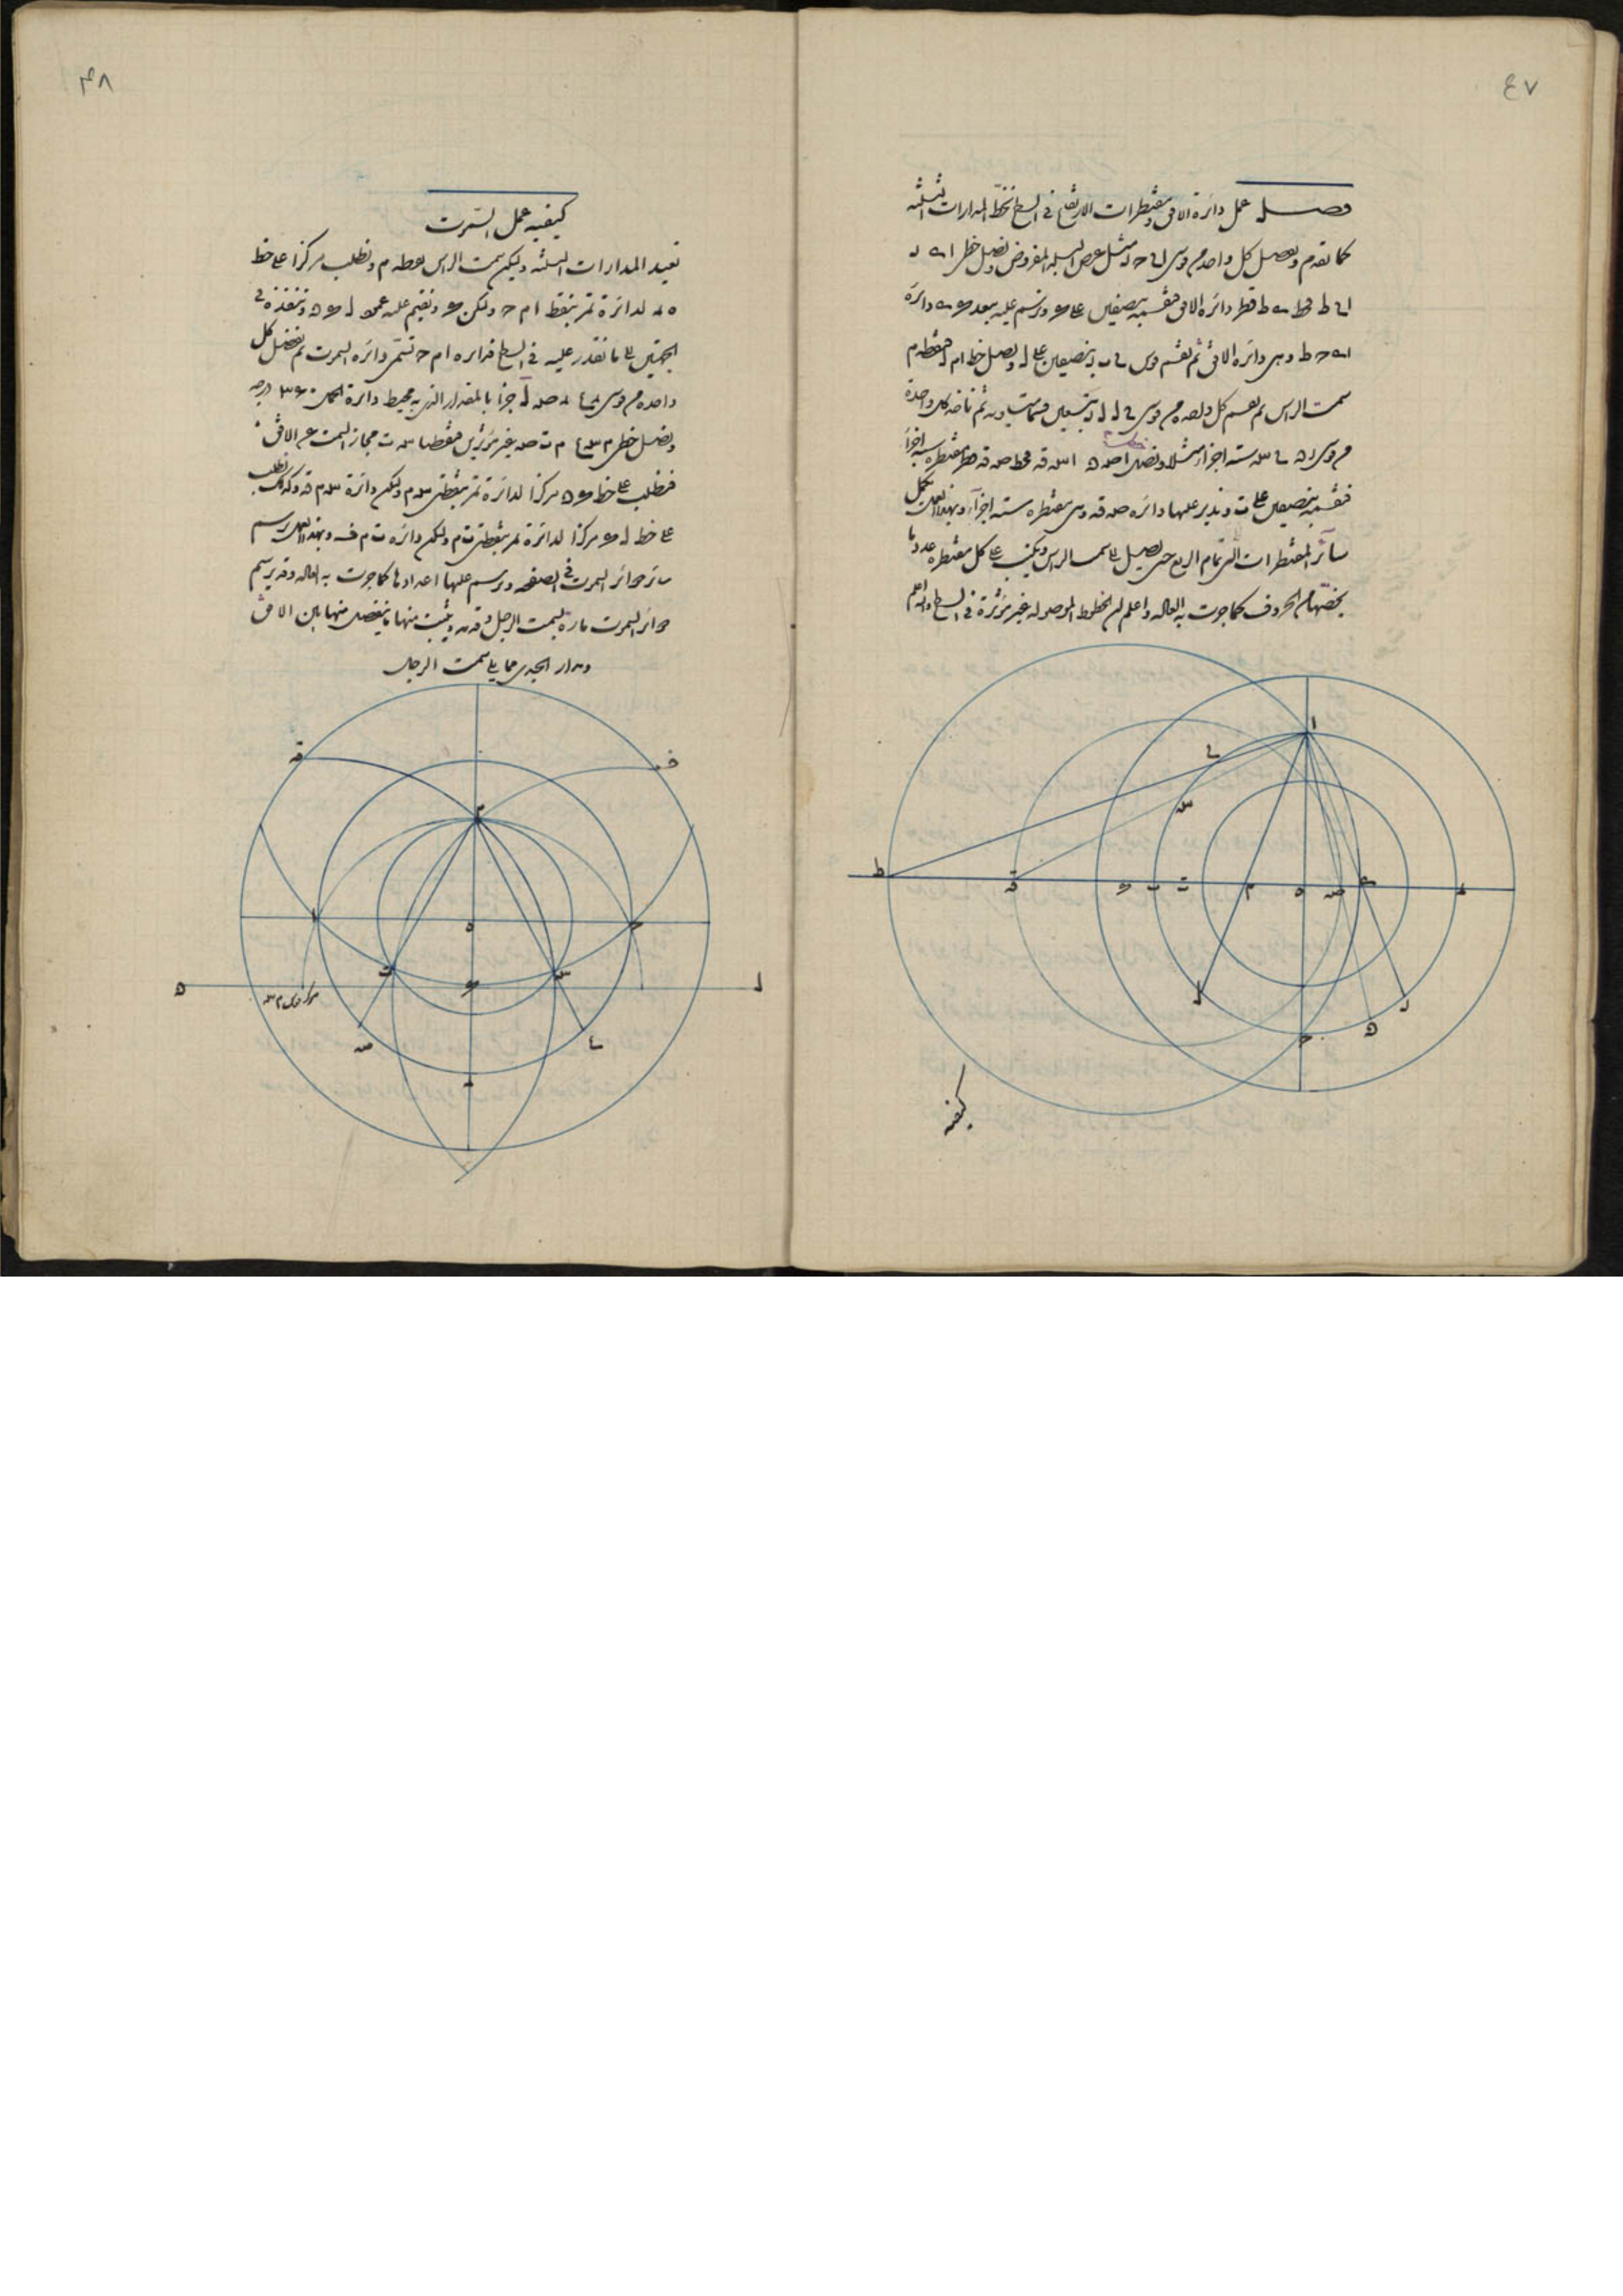 ٤٧
فصل عمل دائرة الافق ومقنطرات الارتفاع في السطح نخط المدارات الثلثه
كما تقدم ونفصل كل واحد من قوسى ى ح د مثل عرض البلد المفروض ونصل خطى ا ه د
ا ى ط فخط ه ط قطر دائره الافق فنقسمه بنصفين على و ونرسم عليه ببعد و ه دائرة
ا ه ح ط وهى دائرة الافق ثم نقسم قوس ى ب د بنصفين على ل ونصل خط ام ل فنقطه م
سمت الراس ثم نقسم كل واحده من قوسى ى ل ل د بتسعين قسما متساويه ثم ناخذ كل واحدة
من قوسى د ى س سته اجزا مثلا ونصل ا ص ا س ق فخط ص ق قطر مقنطره سته اجزا
فنقسمه بنصفين على ت وندير عليها دائره ص ق وهى مقنطره سته اجزاء وبهذا العمل نكمل
سائر المقنطرات الى تمام الربع حتى نصل الى سمت الراس ونكتب على كل مقنطره عددها
يخصها من الحروف كما جرت به العاده واعلم ان الخطوط الموصوله غير مؤثرة في السطح والله اعلم
ا
ى
س
ط
ق
و
ب
ت
م
ه
ص
د
ل
ح
كيفيه
٤٨
كيفيه عمل السموت
نعيد المدارات الثلثه وليكن سمت الراس نقطه م ونطلب مركزا على خط
ه د لدائرة تمر بنقط ا م ح وليكن و ونقيم عليه عمود ل و ن وننفذه فى
الجهتين الى ما نقدر عليه فى السطح فدايره ا م ح تسمى دائره السموت ثم نفصل كل
واحده من قوسى د ع د ص ل جزا بالمقدار الذى به محيط دائرة الحمل ٣٦٠ درجه
ونصل خطى م س ع م ت ص غير مؤثرين فنقطتا س ت مجاز السمت عن الافق
فنطلب على خط و ن مركزا لدائرة تمر بنقطتى س م وليكن دائرة س م ق وكذلك نطلب
على خط ل و مركزا لدائرة تمر بنقطتى ت م وليكن دائره ت م ف وبهذا العمل نرسم
سائر دوائر السموت فى الصفحه ونرسم عليها اعدادها كما جرت به العاده وقد يرسم
دوائر السموت ماره بسمت الرجل وقد يثبت منها ما ينفصل منها بين الافق
ومدار الجدى مما يلى سمت الرجل
ق
ف
م
ا
ه
ح
ت
س
و
ل
ص
ع
د